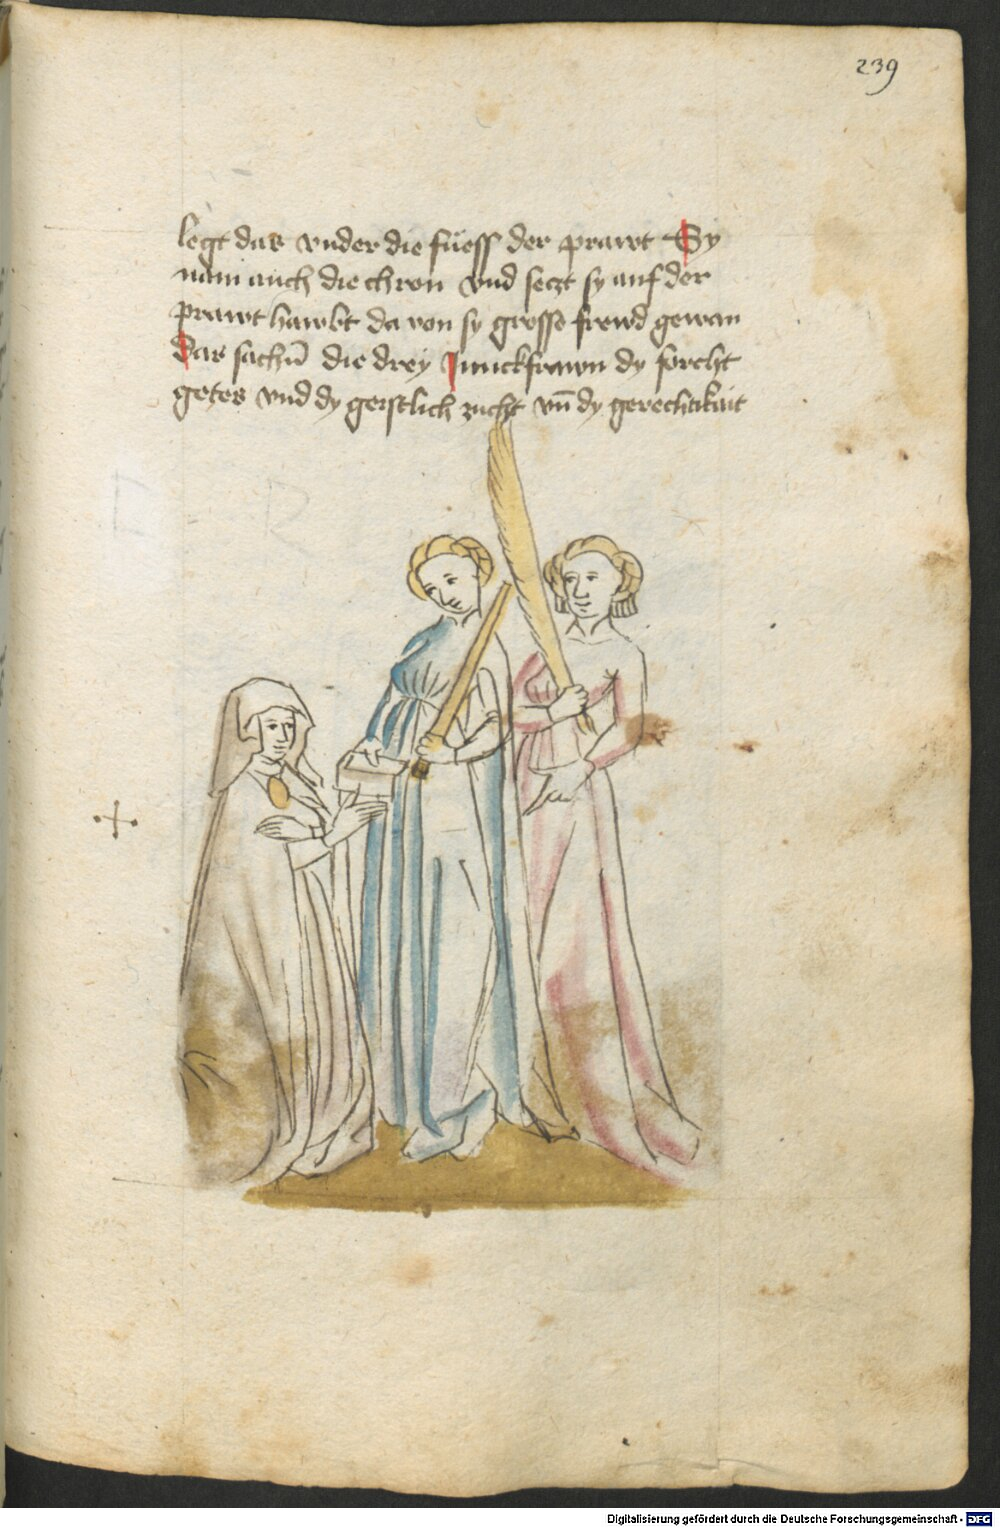 239
legt das vnder die füess der prawt Sy
nam auch die chron vnd seczt sy auf der
prawt hawbt da von sy grosse frewd gewan
Das sachn̄ die drey Junckfrawn dy forcht
gotes vnd dy geistlich zucht vn̄ dy gerechtikait
Digitalisierung gefördert durch die Deutsche Forschungsgemeinschaft - DFG